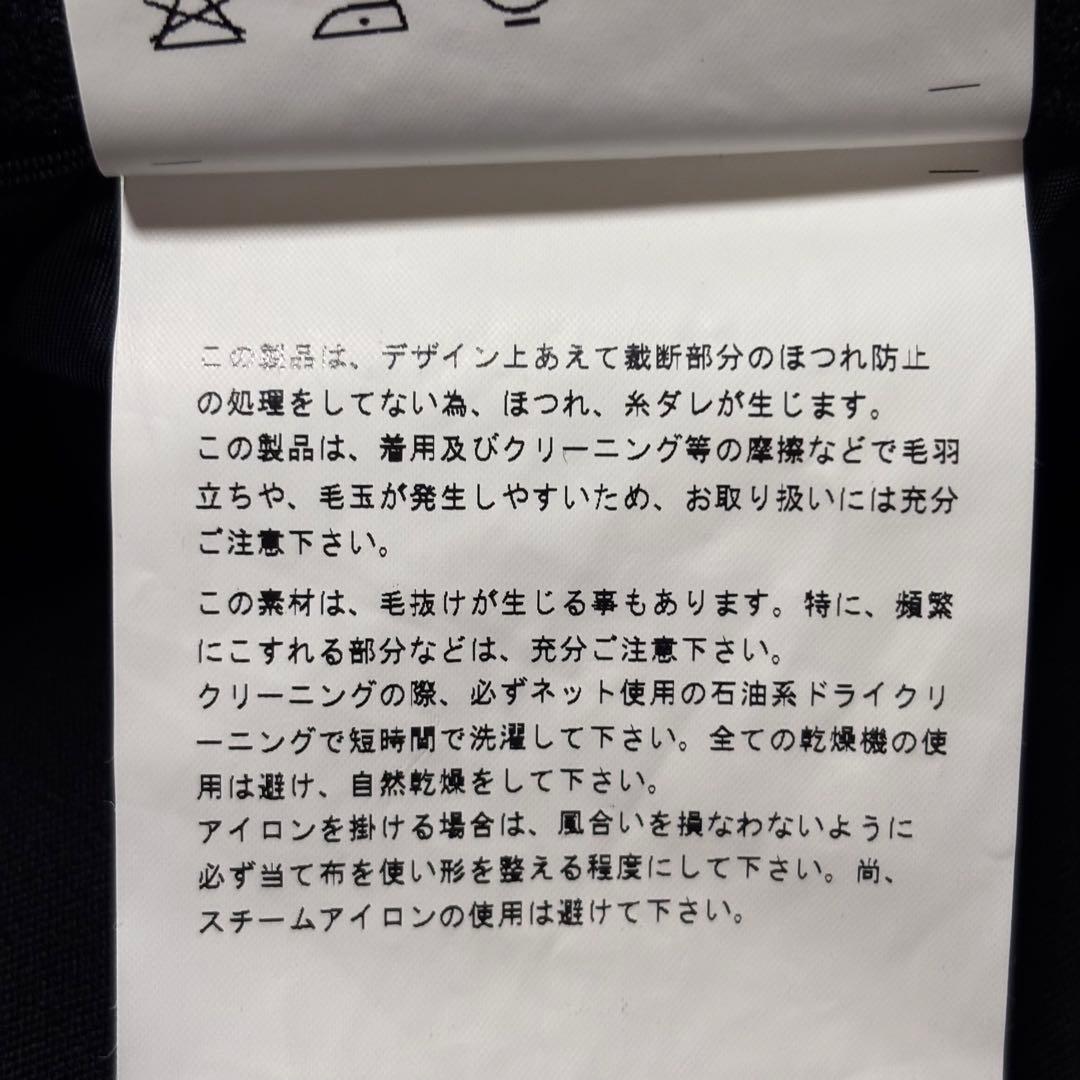 この製品は、デザイン上あえて裁断部分のほつれ防止
の処理をしてない為、ほつれ、糸ダレが生じます。
この製品は、着用及びクリーニング等の摩擦などで毛羽
立ちや、毛玉が発生しやすいため、お取り扱いには充分
ご注意下さい。
この素材は、毛抜けが生じる事もあります。特に、頻繁
にこすれる部分などは、充分ご注意下さい。
クリーニングの際、必ずネット使用の石油系ドライクリ
ーニングで短時間で洗濯して下さい。全ての乾燥機の使
用は避け、自然乾燥をして下さい。
アイロンを掛ける場合は、風合いを損なわないように
必ず当て布を使い形を整える程度にして下さい。尚、
スチームアイロンの使用は避けて下さい。